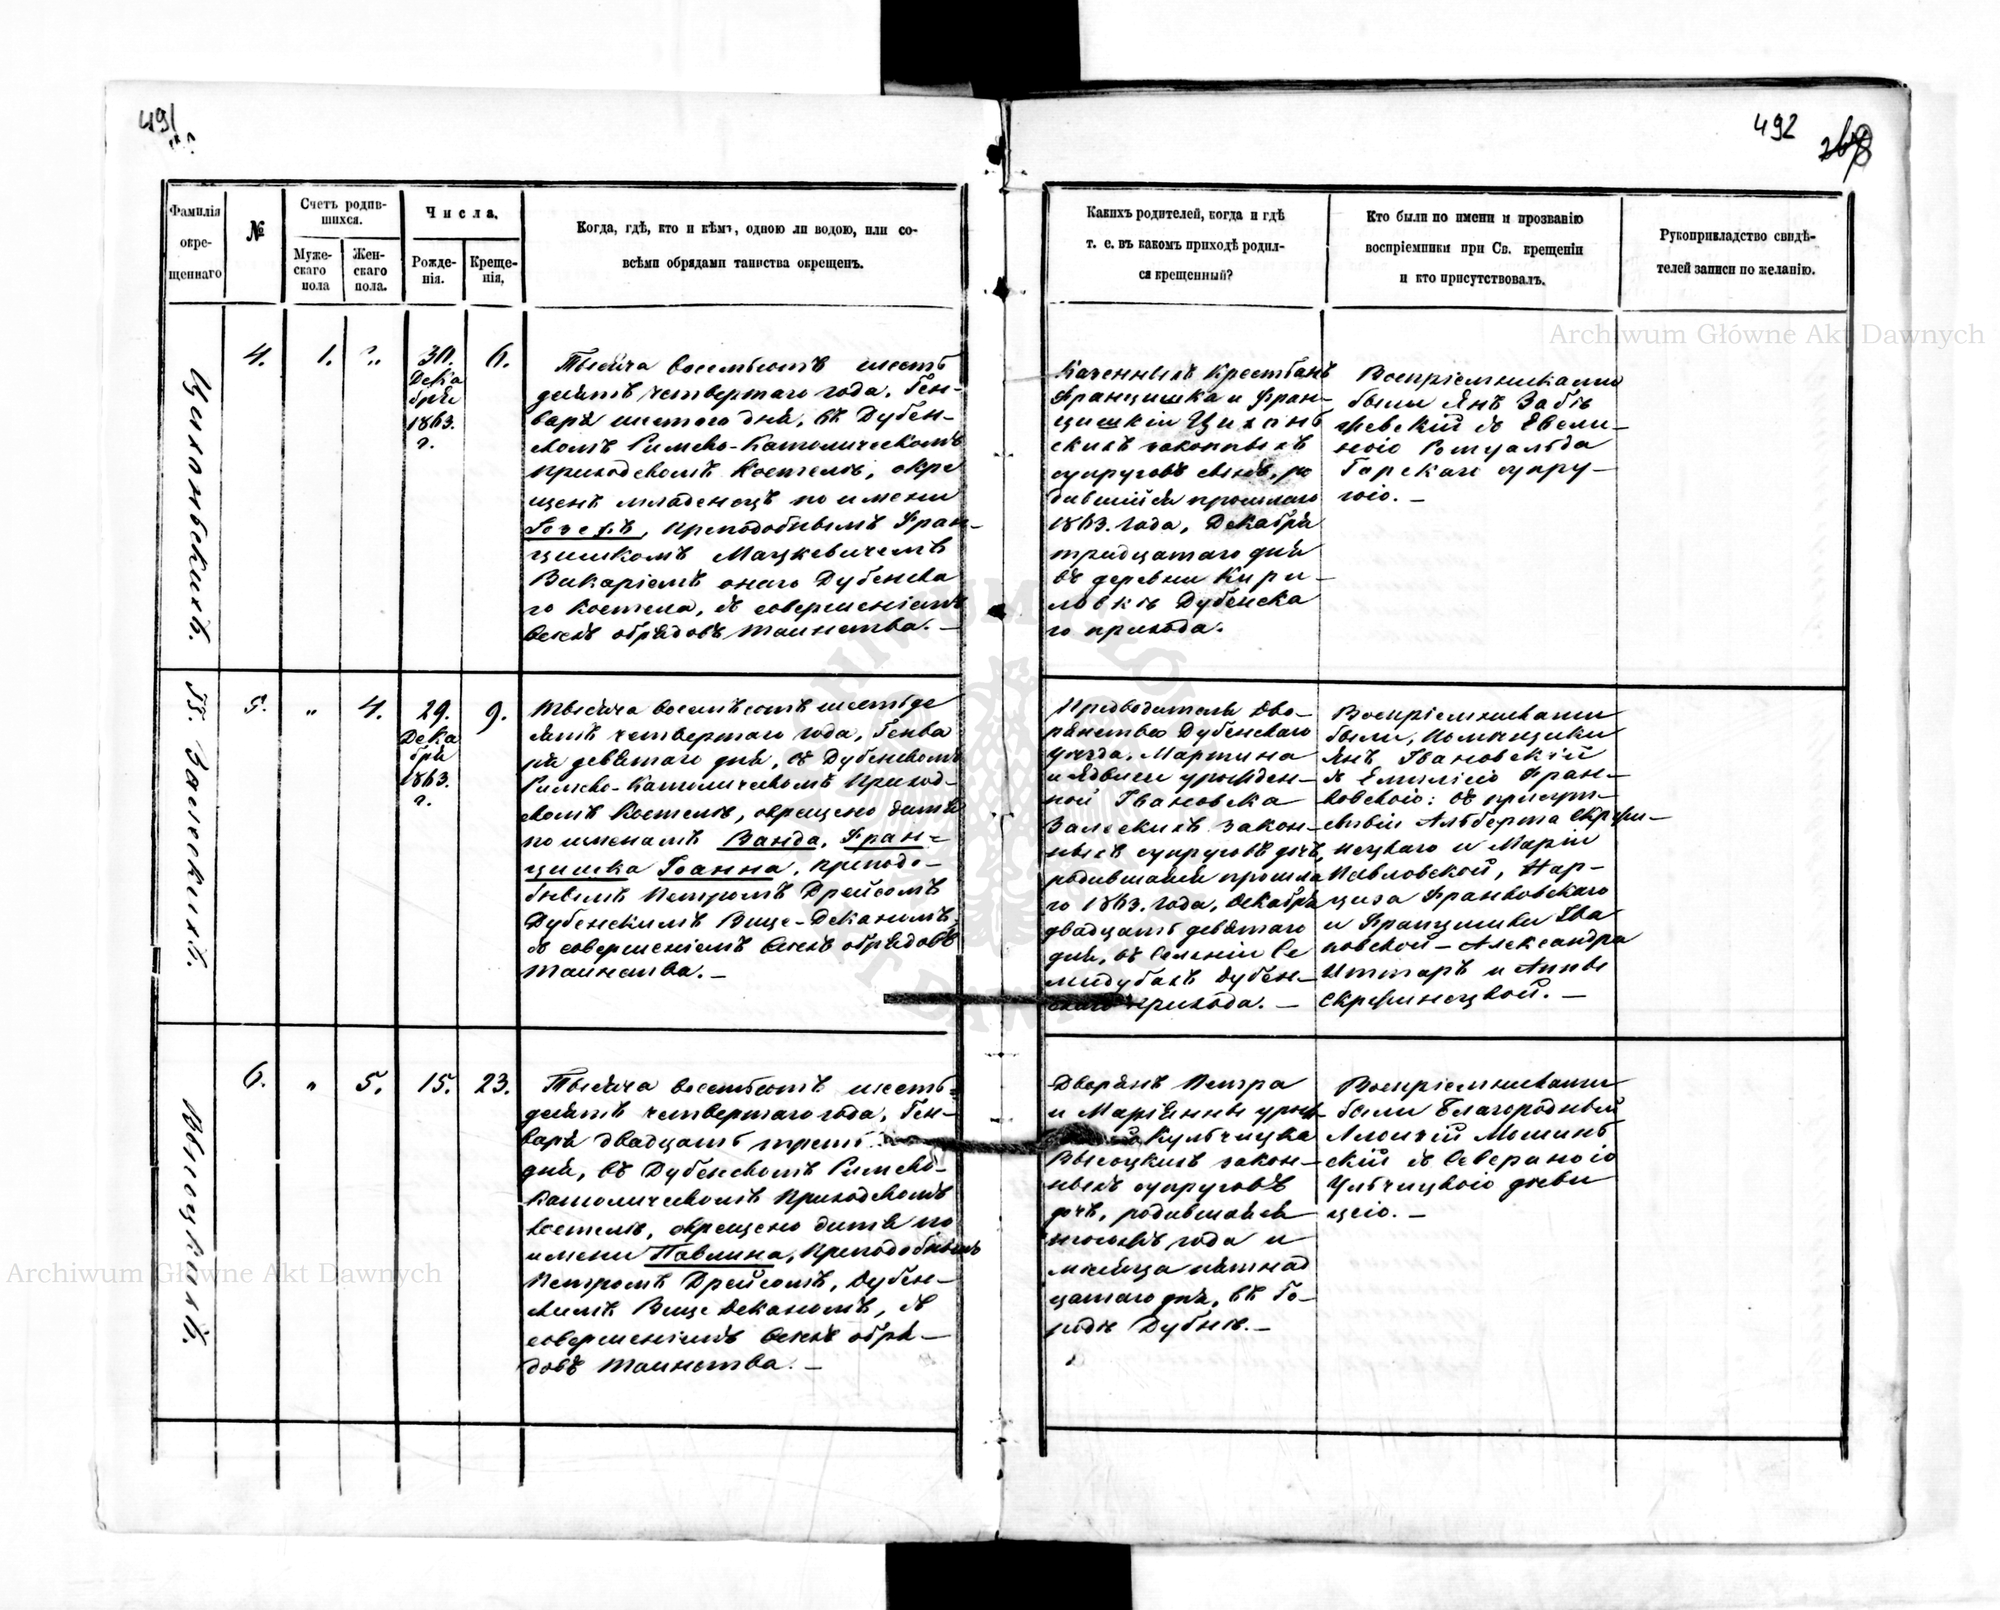 491
492
Фамилія окре-щеннаго
№
Счетъ родив-шихся.
Муже-скаго пола
Жен-скаго пола.
Числа.
Рожде-нія.
Креще-нія,
Когда, гдѣ, кто и кѣмъ, одною ли водою, или со-
всѣми обрядами таинства окрещенъ.
Какихъ родителей, когда и гдѣ
т. е. въ какомъ приходѣ родил-
ся крещенный?
Кто были по имени и прозванію
воспріемники при Св. крещеніи
и кто присутствовалъ.
Рукоприкладство свидѣ-
телей записи по желанію.
Archiwum Główne Akt Dawnych
Цихоньскихъ.
4.
1.
„
30.
Дека
бря
1863.
г.
6.
Тысяча восемьсотъ шесть
десятъ четвертаго года, Ген-
варя шестого дня, въ Дубен-
скомъ Римско-Католическомъ
приходскомъ Костелѣ, окре
щенъ младенецъ по имени
Іозефъ, преподобнымъ Фран-
цишкомъ Мацкевичемъ
Викаріемъ онаго Дубенска
го Костела, съ совершеніемъ
всехъ обрядовъ таинства. —
Казенныхъ Крестьянъ
Францишка и Фран-
цишкіи Цихонь
скихъ законныхъ
супруговъ сынъ, ро
дившійся прошлаго
1863. года, Декабря
тридцатаго дня
въ деревни Кири-
ловкѣ Дубенска
го прихода.
Воспріемниками
были Янъ Забѣ
жевскій съ Евели-
ною Ромуальда
Горскаго супру-
гою. —
Залескихъ.
5.
„
4.
29.
Дека
бря
1863.
г.
9.
Тысяча восемьсотъ шестьде
сятъ четвертаго года, Генва
ря девятаго дня, въ Дубенскомъ
Римско-Католическомъ Приход-
скомъ Костелѣ, окрещено дитя
по именамъ Ванда, Фран-
цишка Іоанна, преподо-
бнымъ Петромъ Дрейсомъ
Дубенскимъ Вице-Деканомъ,
съ совершеніемъ всехъ обрядовъ
таинства. —
Предводителя Дво-
рянства Дубенскаго
уѣзда, Мартина
и Ядвиги урожден-
ной Ивановска
Залескихъ закон-
ныхъ супруговъ дочь,
родившаяся прошла
го 1863. года, Декабря
двадцать девятаго
дня, въ селеніи Се
мидубахъ Дубен-
скаго прихода. —
Воспріемниками
были, Помѣщики
Янъ Ивановскій
съ Емилією Фран-
ковскою: въ присут-
ствіи Альберта Скржи-
нецкаго и Маріи
Павловской, Нар-
циза Франковскаго
и Францишки Ива
новской — Александра
и Анны
Скржинецкой. —
Высоцкихъ.
6.
„
5.
15.
23.
Тысяча восемьсотъ шесть-
десятъ четвертаго года, Ген-
варя двадцать треть
дня, въ Дубенскомъ Римско-
Католическомъ Приходскомъ
костелѣ, окрещено дитя по
имени Павлина, Преподобнымъ
Петромъ Дрейсомъ, Дубен-
скимъ Вице Деканомъ, съ
совершеніемъ всехъ обря-
довъ таинства. —
Дворянъ Петра
и Маріянны урож-
Кульчицка
Высоцкихъ закон-
ныхъ супруговъ
дочь, родившаяся
тогожъ года и
мѣсяца пятнад
цатаго дня, въ Го-
родѣ Дубнѣ. —
Воспріемниками
были Благородный
Алоизій Мошинь
скій съ Севериною
Ульчицкою дѣви
цею. —
Archiwum Główne Akt Dawnych